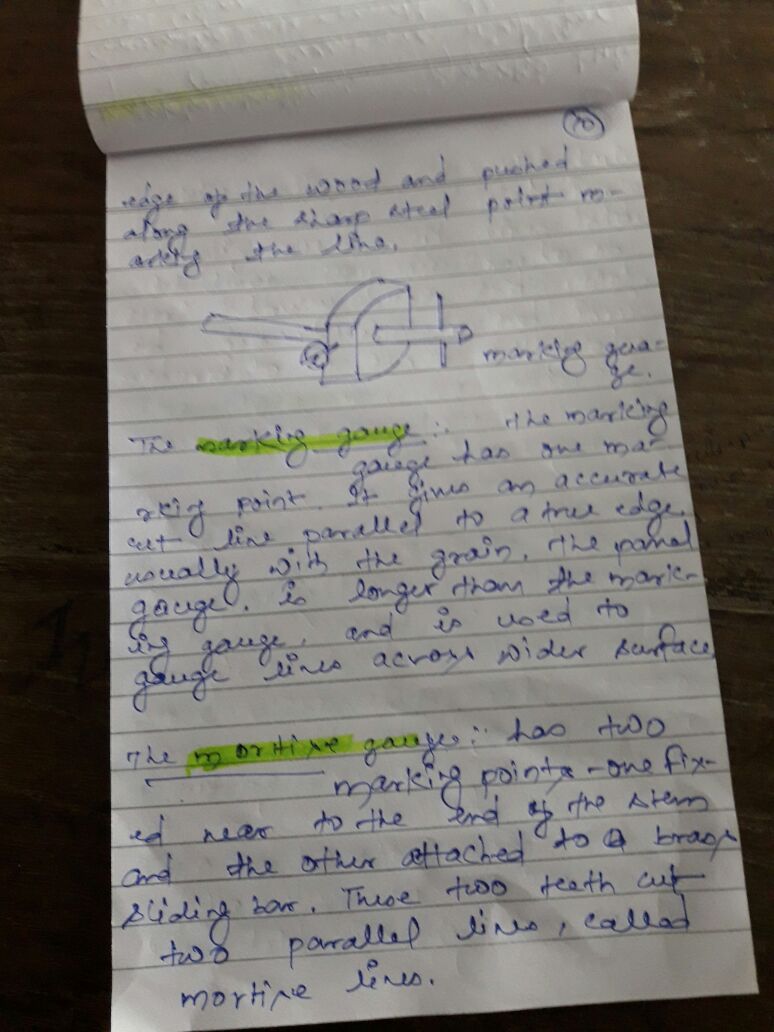 edge of the wood and pushed
along the sharp steel point m-
arking the line.
marking gua-
ge.
The marking gauge :- The marking
gauge has one ma-
rking point. It gives an accurate
cut line parallel to a true edge.
usually with the grain. the panel
gauge. is longer than the mark-
ing gauge. and is used to
gauge lines across wider surface
The mortise gauge :- has two
marking points - one fix-
ed near to the end of the stem
and the other attached to a brass
sliding bar. These two teeth cut
two parallel lines, called
mortise lines.